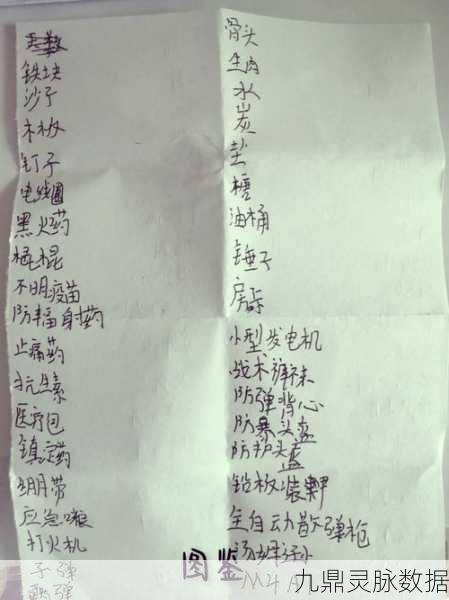 铁块
沙子
木板
钉子
电线圈
黑火药
棍棍
不明疫苗
防辐射药
止痛药
抗生素
医疗包
镇定药
绷带
应急口粮
打火机
子弹
骨头
生肉
水
炭
盐
糖
油桶
锤子
小型发电机
战术裤袜
防弹背心
防暴头盔
防护头盔
铅板装甲
全自动散弹枪
图鉴
M4A
九鼎灵脉数据